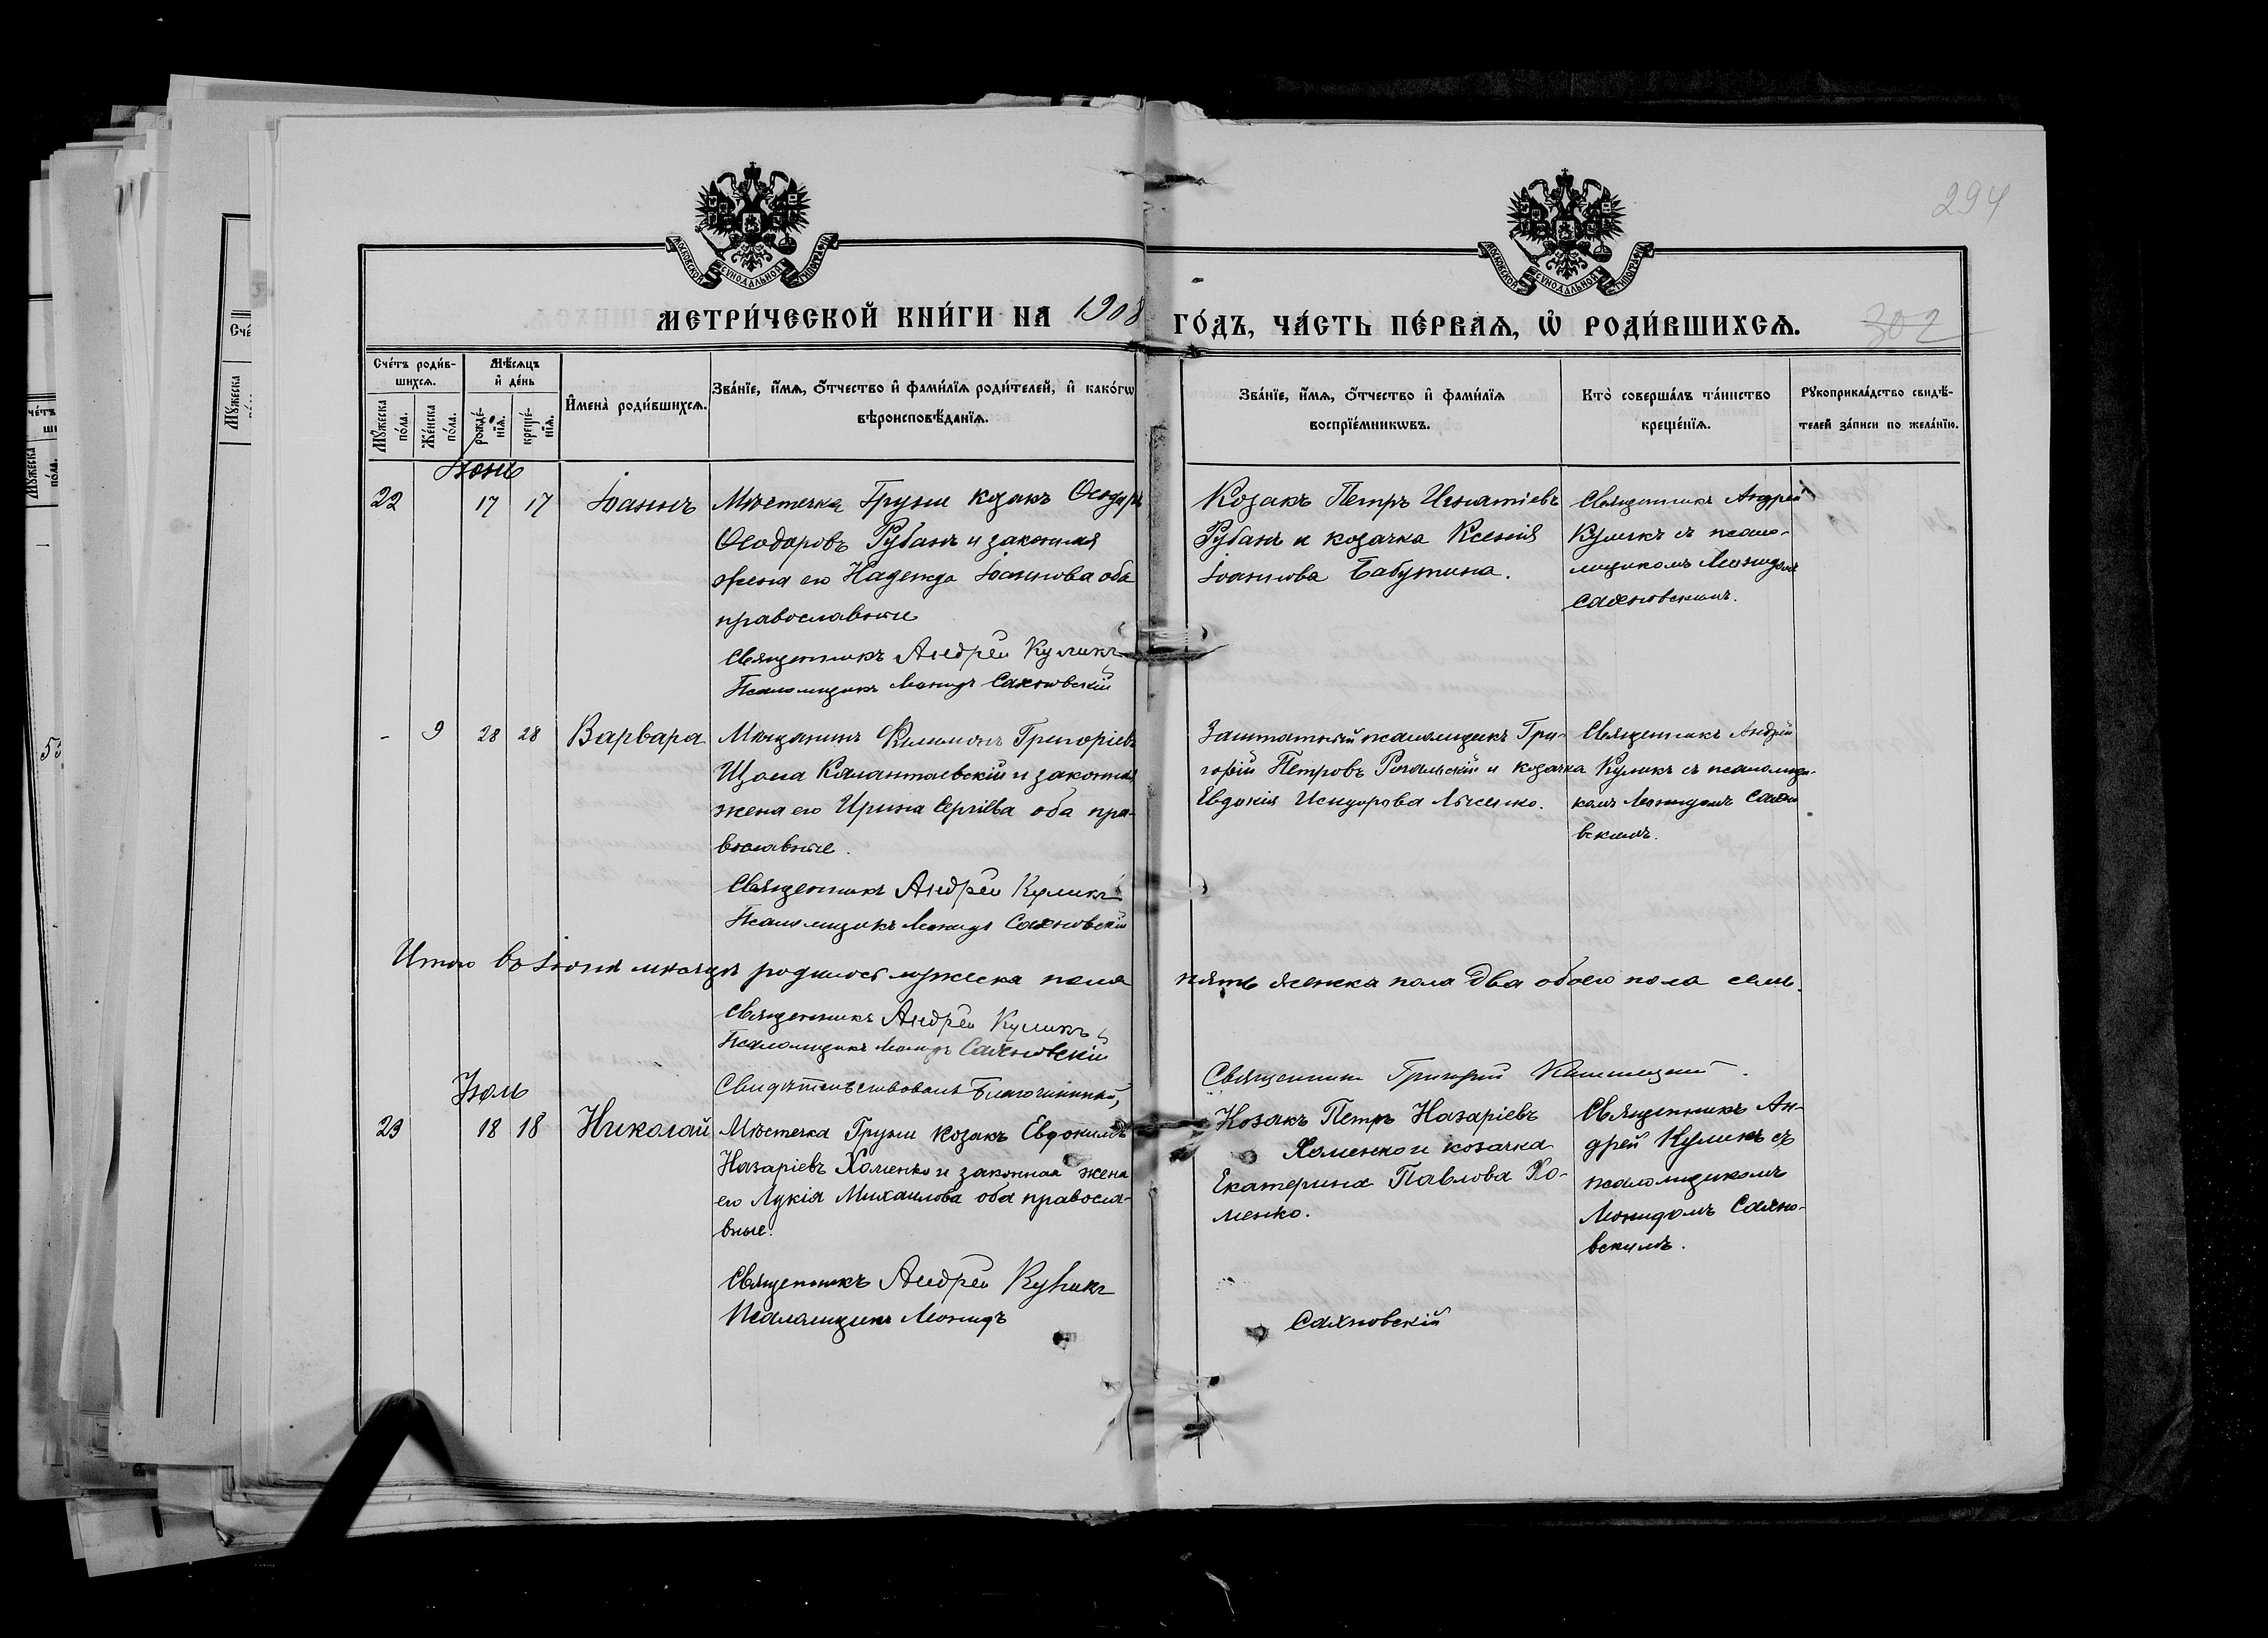 294
МОСКОВСКОЙ СУНОДАЛЬНОЙ ТИПОГРАФІИ
МОСКОВСКОЙ СУНОДАЛЬНОЙ ТИПОГРАФІИ
МЕТРИ́ЧЕСКОЙ КНИ́ГИ НА 1908 ГО́ДЪ, ЧА́СТЬ ПЕ́РВАѦ, Ѽ РОДИ́ВШИХСѦ.
302
Сче́тъ роди́в-
шихсѧ.
Мѣ́сѧцъ
и҆ де́нь
Мꙋ́жеска
по́ла.
Же́нска
по́ла.
рожде́-
нїѧ.
креще́-
нїѧ.
И҆мена̀ роди́вшихсѧ.
Зва́нїе, и҆́мѧ, ѻ҆́тчество и҆ фами́лїѧ роди́телей, и҆ како́гѡ
вѣроисповѣ́данїѧ.
Зва́нїе, и҆́мѧ, ѻ҆́тчество и҆ фами́лїѧ
воспрїе́мникѡвъ.
Кто̀ соверша́лъ та́инство
креще́нїѧ.
Рꙋкоприкла́дство свидѣ́-
телей за́писи по жела́нїю.
Іюнь
22 17 17 Іоаннъ
Мѣстечка Груни козакъ Ѳеодоръ
Ѳеодоровъ Рубанъ и законная
жена его Надежда Іоаннова оба
православные
Священникъ Андрей Куликъ
Псаломщикъ Леонидъ Сахновскій
Козакъ Петръ Игнатіевъ
Рубанъ и козачка Ксенія
Іоаннова Бабушина.
Священникъ Андрей
Куликъ съ псало-
мщикомъ Леонидомъ
Сахновскимъ.
- 9 28 28 Варвара
Мѣщанинъ Филимонъ Григоріевъ
Щома Калантаевскій и законная
жена его Ирина Сергіева оба пра-
вославные.
Священникъ Андрей Куликъ
Псаломщикъ Леонидъ Сахновскій
Заштатный псаломщикъ Гри-
горій Петровъ Рогальскій и козачка
Евдокія Исидорова Лысенко.
Священникъ Андрей
Куликъ съ псаломщи-
комъ Леонидомъ Сахно
вскимъ.
Итого въ Іюнѣ мѣсяцѣ родилось мужеска пола пять женска пола два обоего пола семь.
Священникъ Андрей Куликъ
Псаломщикъ Леонидъ Сахновскій
Свидѣтельствовалъ Благочинный, Священникъ Григорій
Іюль
23 18 18 Николай
Мѣстечка Груни козакъ Евдокимъ
Назаріевъ Хоменко и законная жена
его Лукія Михаилова оба правосла-
вные.
Священникъ Андрей Куликъ
Псаломщикъ Леонидъ Сахновскій
Козакъ Петръ Назаріевъ
Хоменко и козачка
Екатерина Павлова Хо-
менко.
Священникъ Ан-
дрей Куликъ съ
псаломщикомъ
Леонидомъ Сахно-
вскимъ.